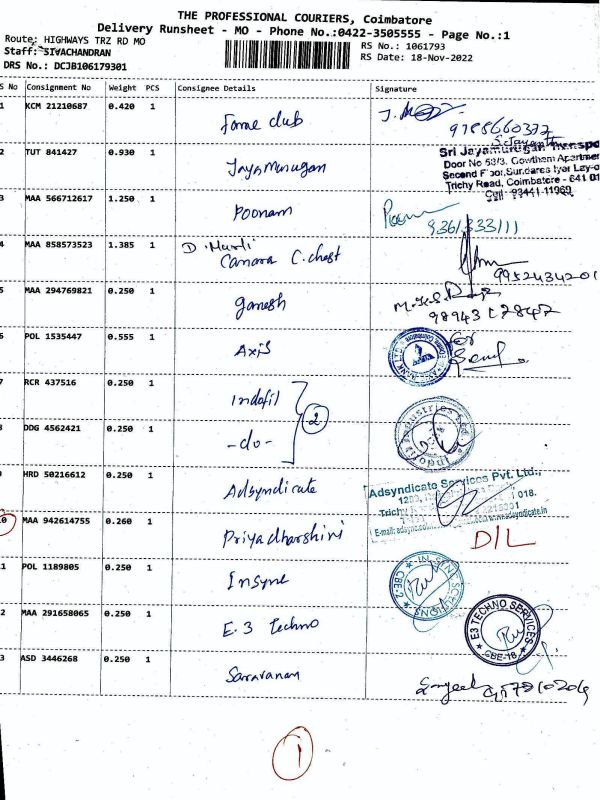 THE PROFESSIONAL COURIERS, Coimbatore
Delivery Runsheet - MO - Phone No.:0422-3505555 - Page No.:1
Route: HIGHWAYS TRZ RD MO
RS No.: 1061793
Staff: SIVACHANDRAN
RS Date: 18-Nov-2022
DRS No.: DCJB106179301
S No Consignment No Weight PCS Consignee Details Signature
1 KCM 21210687 0.420 1 Fame club
9788660372
2 TUT 841427 0.930 1 Jayamurugan
Sri Jayamurugan Transpo
Door No 53/3, Gowtham Apartment
Second Floor, Sundaresa Iyer Lay-o
Trichy Road, Coimbatore - 641 01
Cell 93441-11969
3 MAA 566712617 1.250 1 Poonam
Poonam 9361333111
4 MAA 858573523 1.385 1 D. Murli
Canara C. chest
9952434201
5 MAA 294769821 0.250 1 ganesh
98943 12847
6 POL 1535447 0.555 1 Axis
7 RCR 437516 0.250 1 Indofil
2
Indofil Industries Ltd.
8 DDG 4562421 0.250 1 -do-
9 HRD 50216612 0.250 1 Adsyndicate
Adsyndicate Services Pvt. Ltd.,
018.
Trichy
10 MAA 942614755 0.260 1 Priyadharshini
D/L
11 POL 1189805 0.250 1 Insyne
CBE-2
12 MAA 291658065 0.250 1 E.3 Techno
E3 TECHNO SERVICES
CBE-18
13 ASD 3446268 0.250 1 Saravanan
1